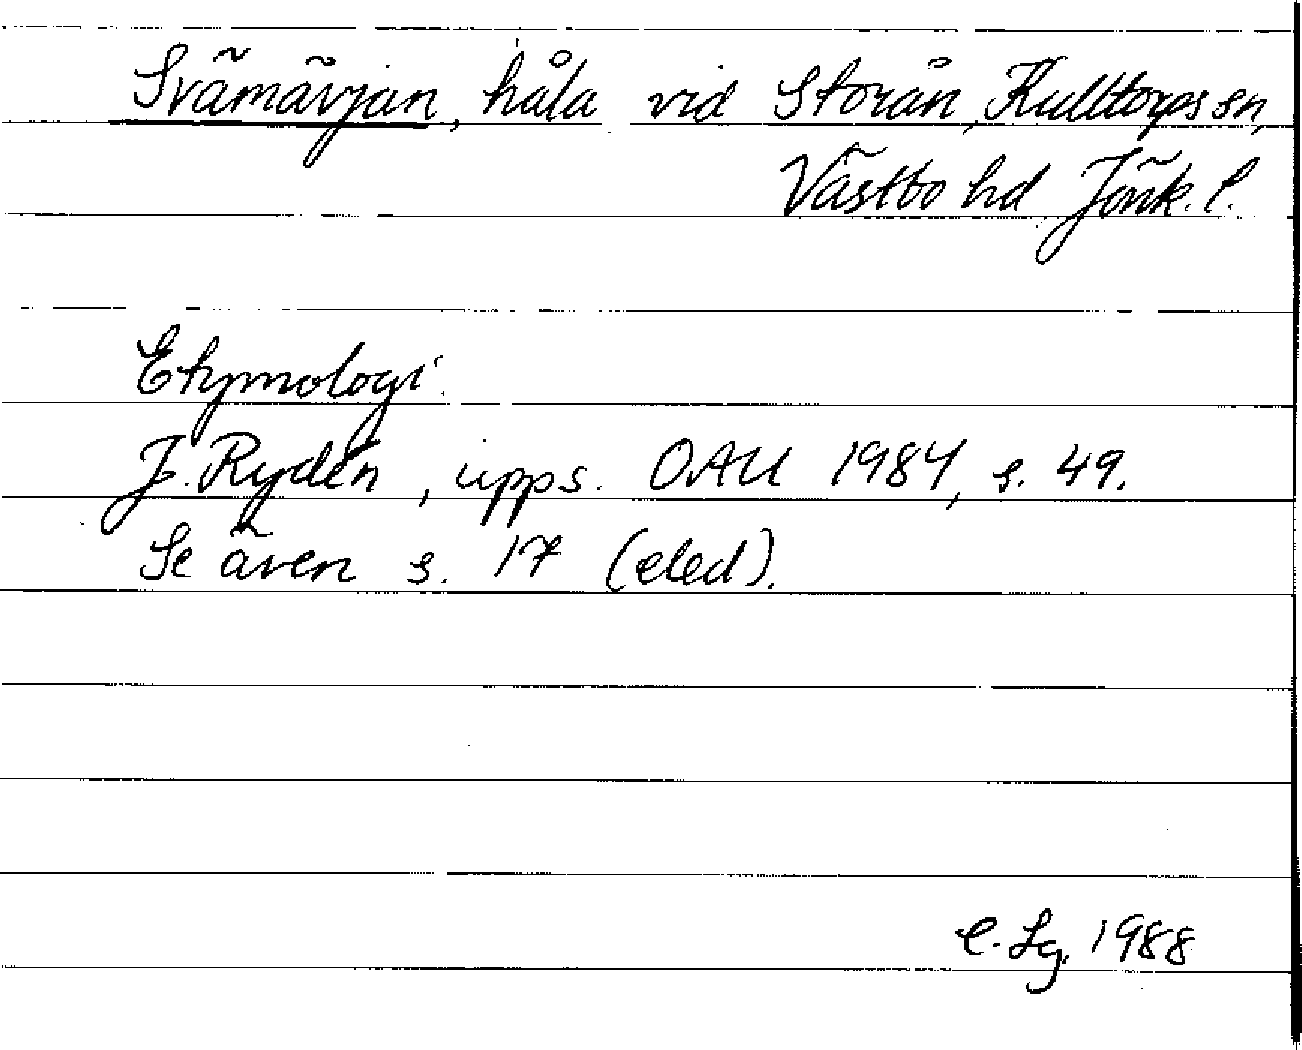 Svämävjan, håla vid Storån, Kulltorps sn,
Västbo hd Jönk. l.
Etymologi.
J. Rydén, upps. OAU 1984, s. 49.
Se även s. 17 (eled).
C. Lg. 1988